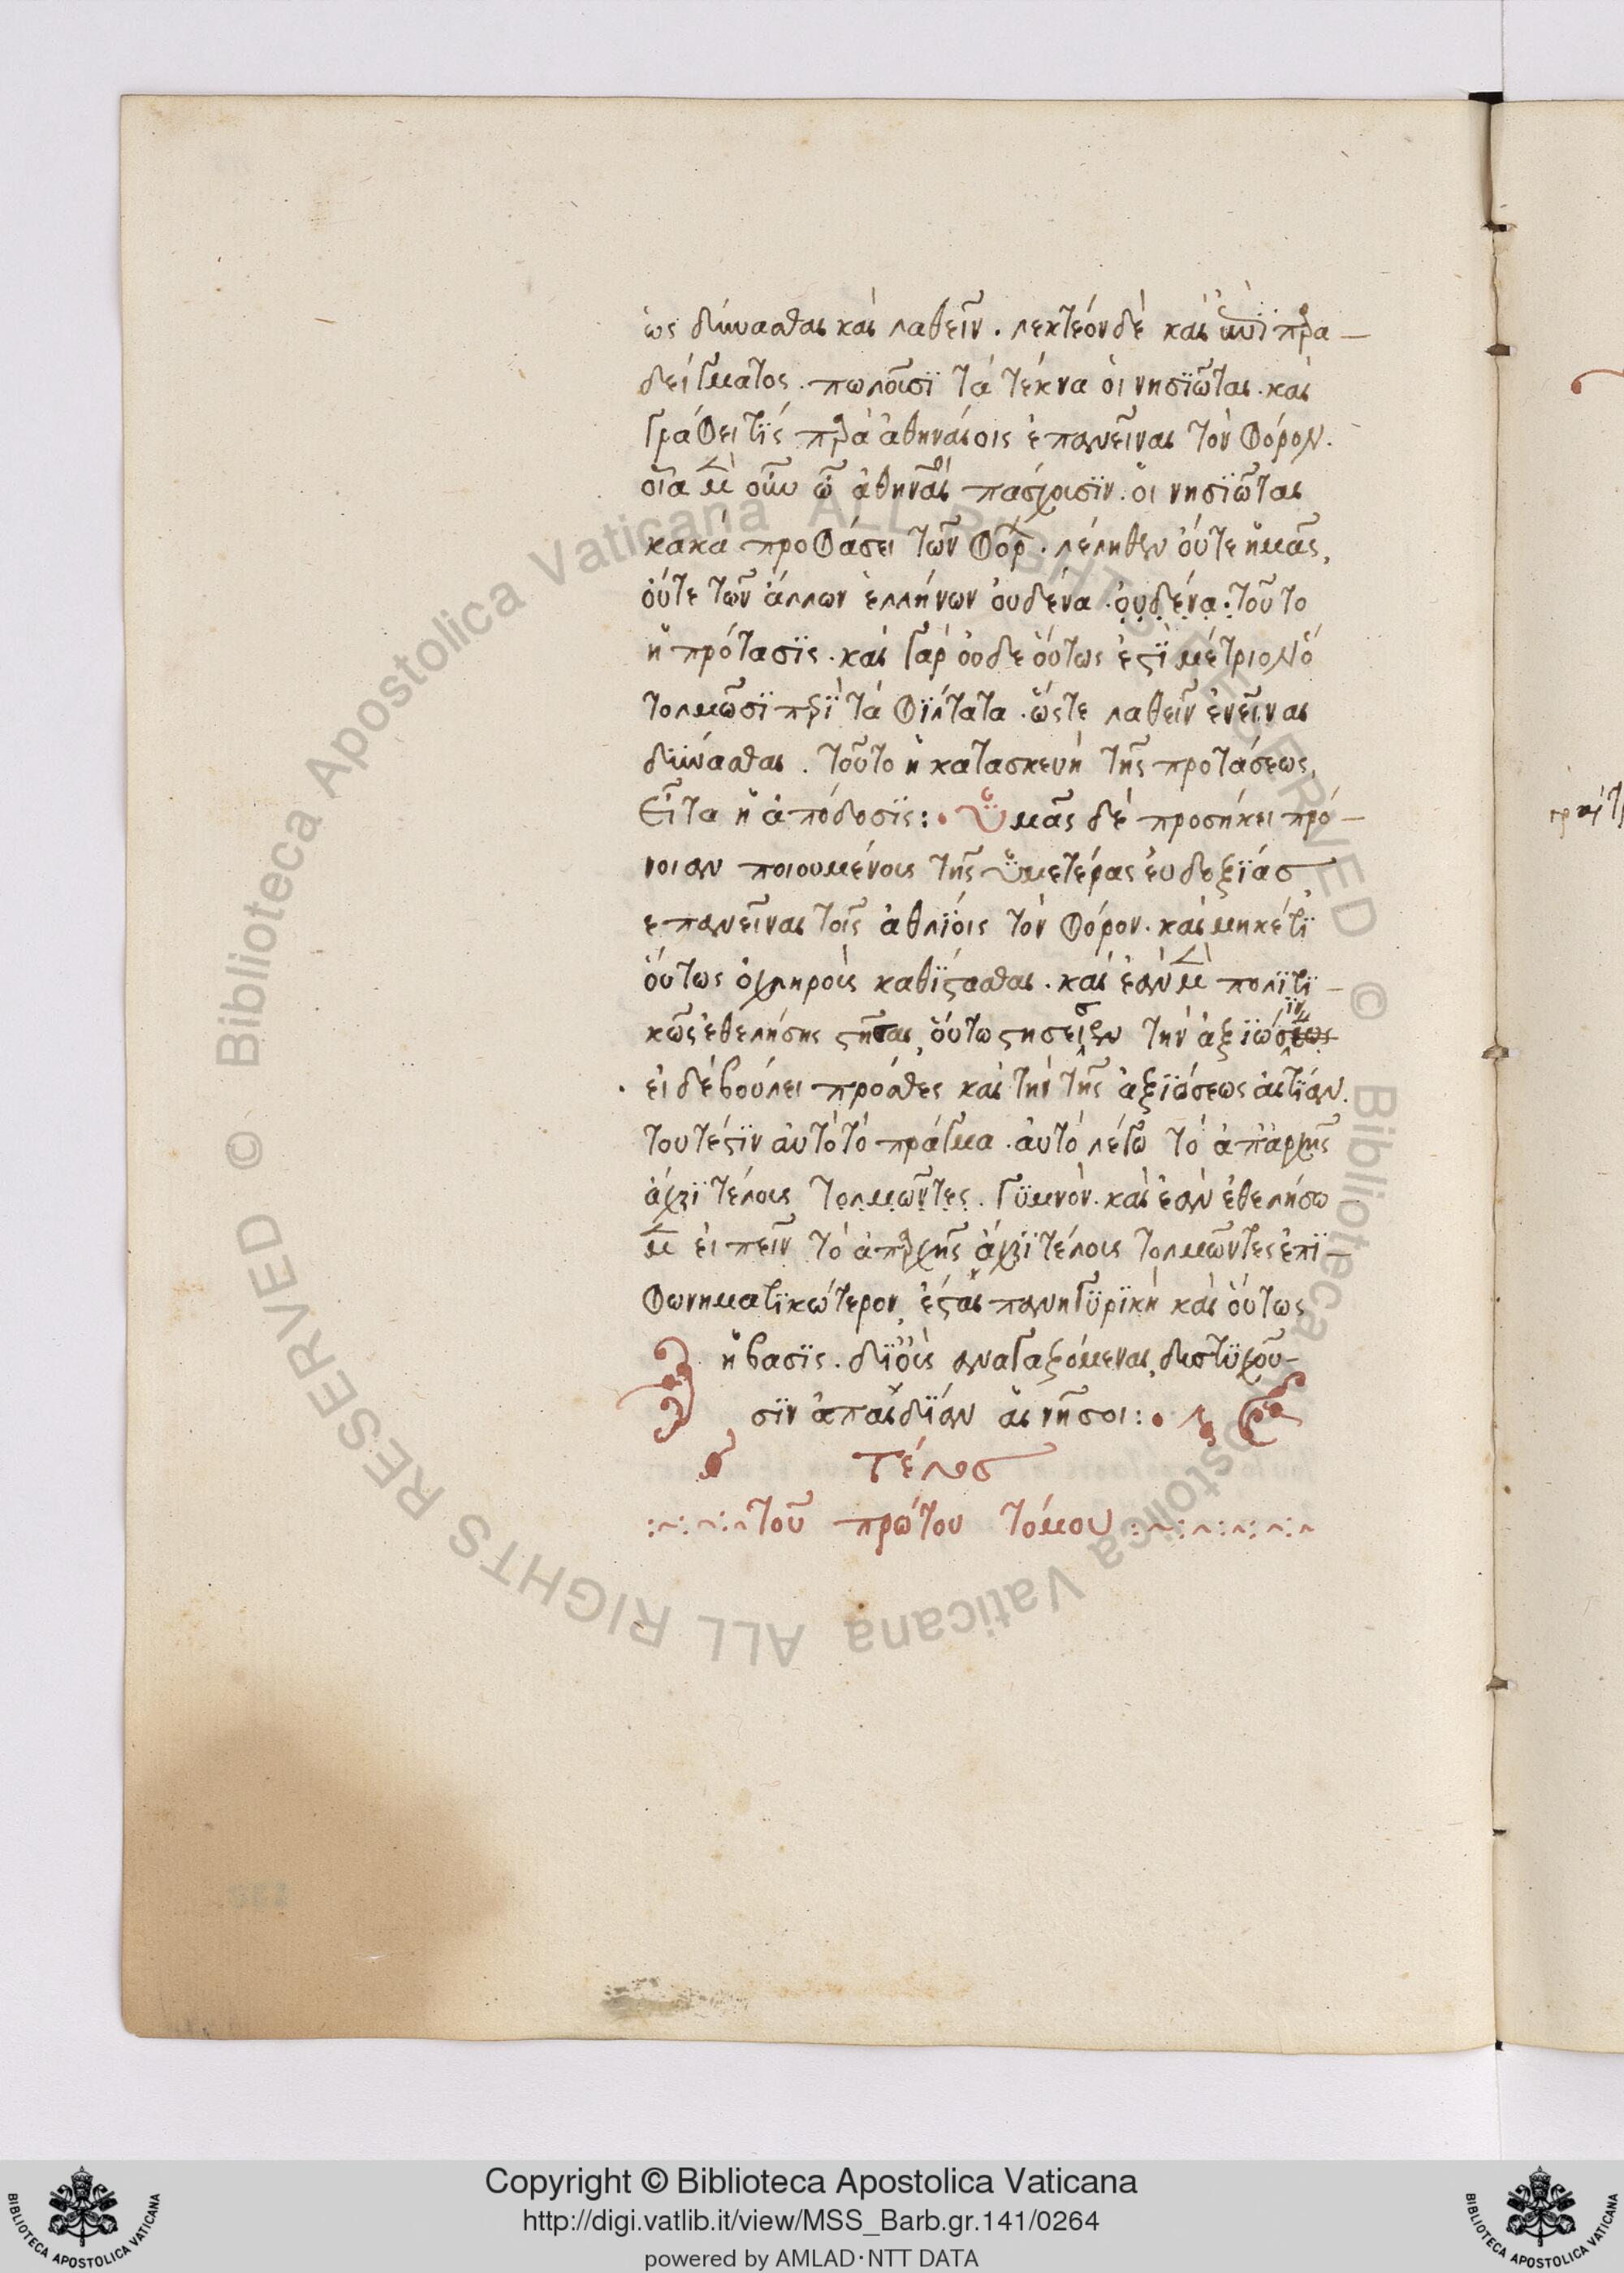 ὡς δύνασθαι καὶ λαθεῖν. λεκτέον δὲ καὶ ἐπὶ πρα—
δείγματος. πωλοῦσϊ τὰ τέκνα ὁι νησϊῶται. καὶ
γράφει τῒς πρὰ ἀθηνάιοις ἐπανεῖναι τὸν φόρον.
οἷα μὲν οὖν ὦ ἀθηναῖ πασχουσϊν. ὁι νησϊῶται
κακὰ προφάσει τῶν φόρ. λέληθεν ὀύτε ἡμᾶς,
ὀύτε τῶν ἄλλων ἑλλήνων ὀυδένα. ὀυδένα. τοῦτο
ἡ πρότασϊς. καὶ γὰρ ὀυδε ὅυτως ἐστῒ μέτριον ὃ
τολμῶσϊ πρῒ τὰ φϊλτατα. ὥστε λαθεῖν ἐνεῖναι
δϋνάσθαι. τοῦτο ἡ κατασκευὴ τῆς προτάσεως,
Εἶτα ἡ ἀπόδοσϊς:• ὑμᾶς δὲ προσήκει πρό—
νοιαν ποιουμένους τῆς ὑμετέρας ἐυδοξϊάς,
επανεῖναι τοῖς ἀθλϊόις τὸν φόρον. καὶ μηκέτϊ
ὅυτως ὀχληροὺς καθϊστασθαι. καὶ ἐὰν μὲν πολϊτϊ—
κῶς ἐθελήσης στῆσαι, ὅυτω στησεις τὴν ἀξϊώσϊν
. ἐι δὲ βούλει πρόσθες καὶ τὴν τῆς ἀξϊώσεως ἀιτϊάν.
τουτέστϊν ἀυτὸ τὸ πράγμα. ἀυτὸ λέγω τὸ ἀπἀρχῆς
ἀχρϊ τέλους τολμῶντες. γϋμνόν. καὶ ἐὰν ἐθελήσω
μὲν ἐιπεῖν τὸ ἀπρχῆς ἀχρϊ τέλους τολμῶντες ἐπϊ—
φωνηματϊκώτερον, ἔσται πανηγϋρϊκὴ καὶ ὅυτως
ἡ βασϊς. δϊ ὃυς αναγαζόμεναι, δυστϋχοῦ—
σϊν ἀπαιδϊάν ἁι νῆσοι:•
τέλος
του πρώτου τόμου
Copyright © Biblioteca Apostolica Vaticana
http://digi.vatlib.it/view/MSS_Barb.gr.141/0264
powered by AMLAD·NTT DATA
BIBLIOTECA APOSTOLICA VATICANA
BIBLIOTECA APOSTOLICA VATICANA
© Biblioteca Apostolica Vaticana ALL RIGHTS RESERVED
© Biblioteca Apostolica Vaticana ALL RIGHTS RESERVED